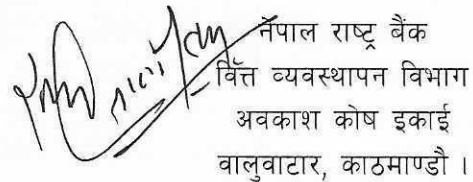 नेपाल राष्ट्र बैंक
वित्त व्यवस्थापन विभाग
अवकाश कोष इकाई
वालुवाटार, काठमाण्डौ ।